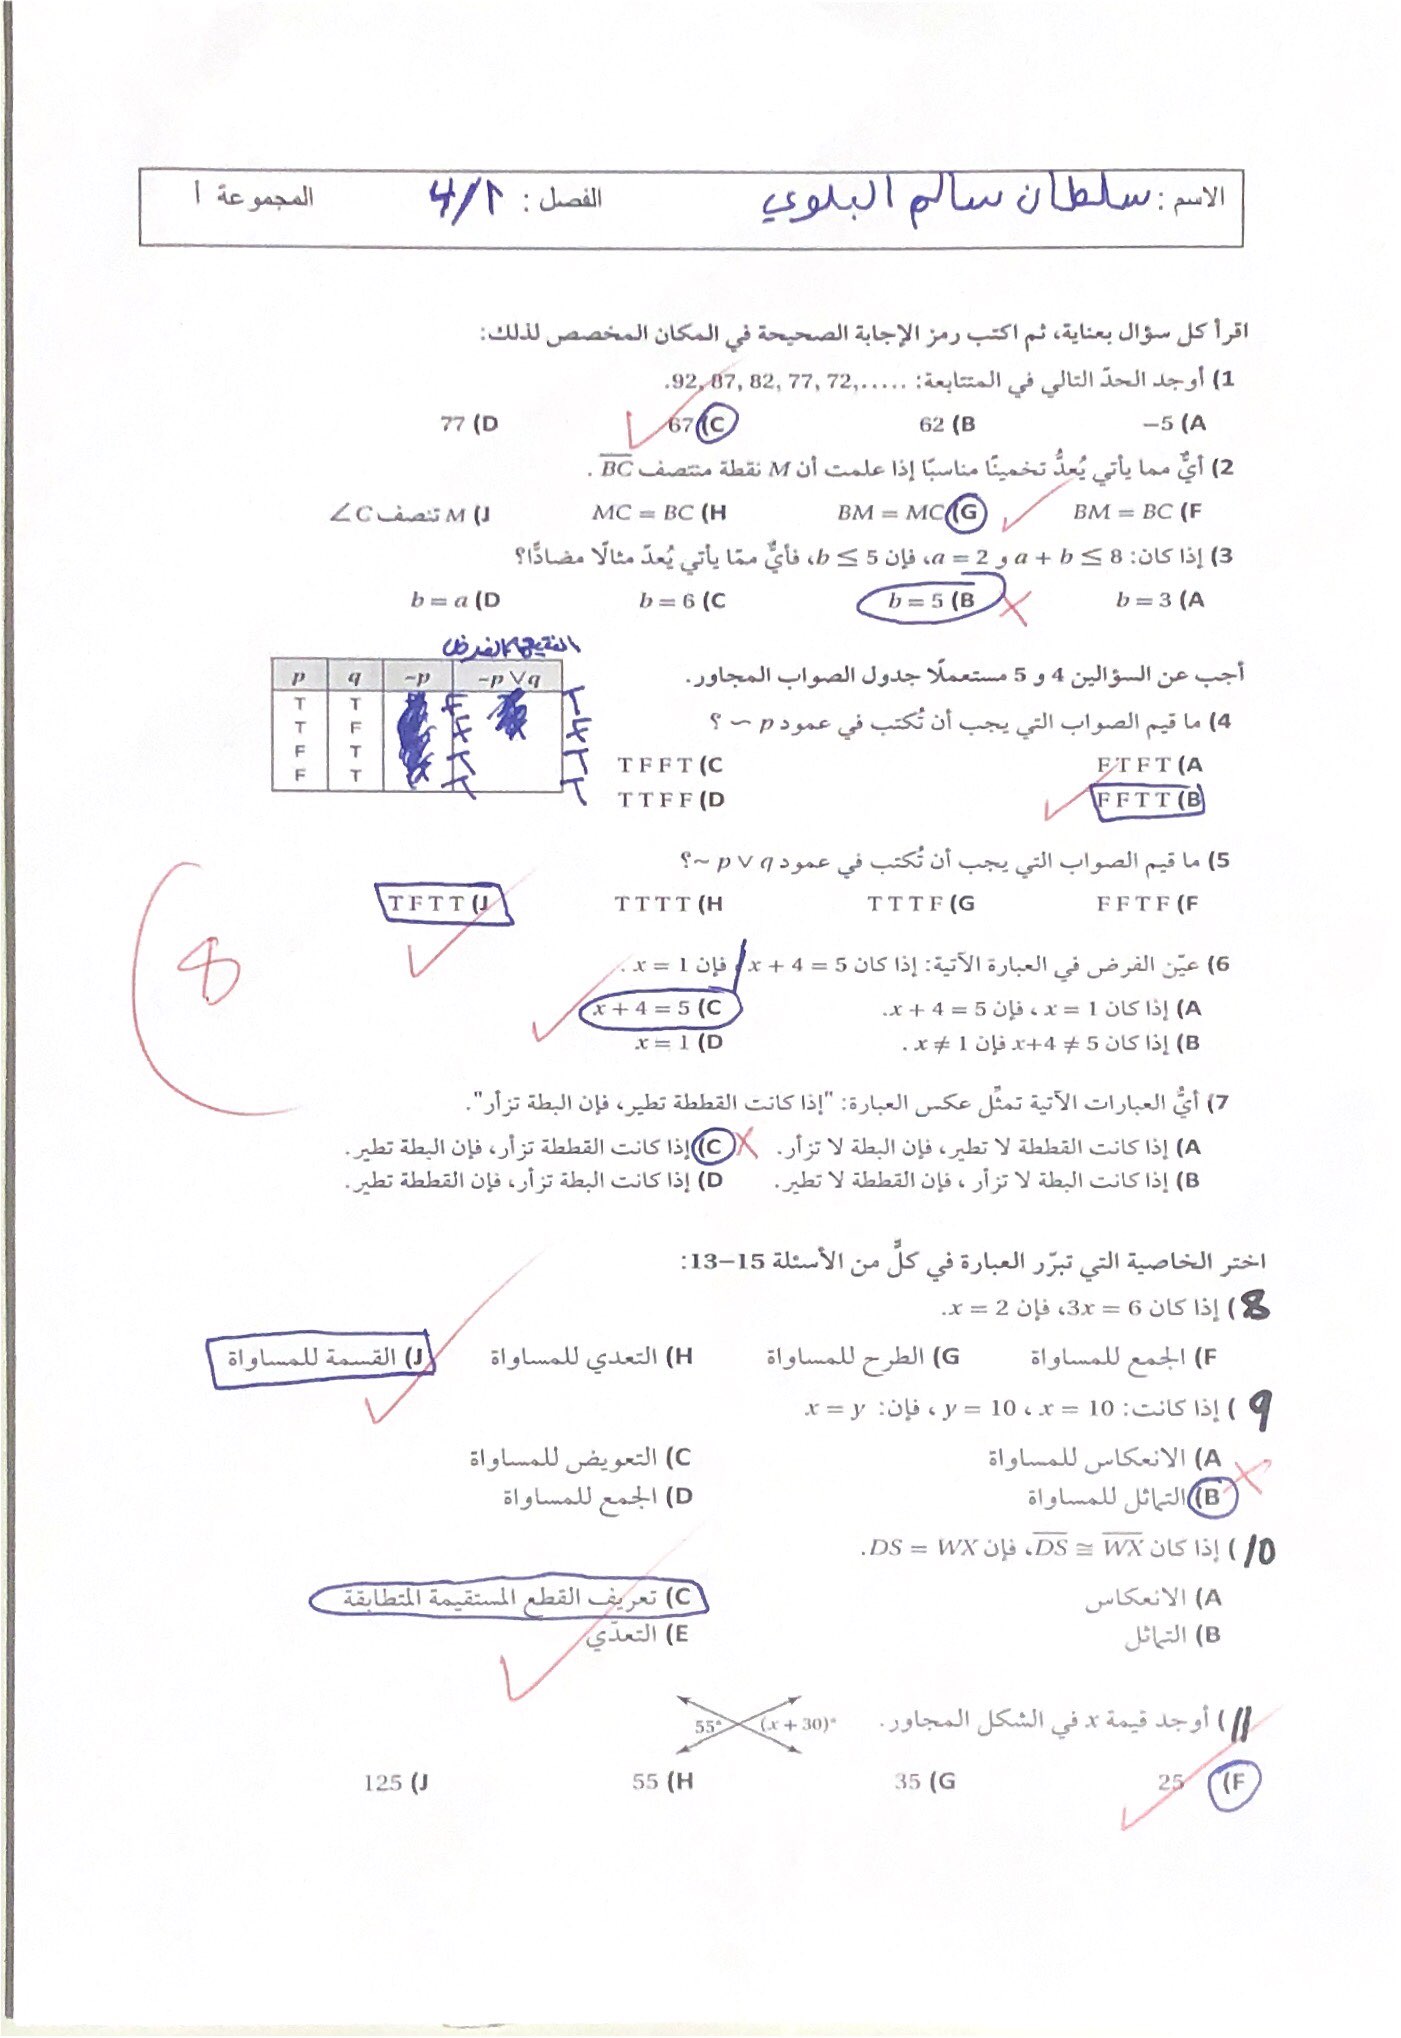 الاسم : سلطان سالم البلوي الفصل : 4/1 المجموعة أ
اقرأ كل سؤال بعناية، ثم اكتب رمز الإجابة الصحيحة في المكان المخصص لذلك:
1) أوجد الحدّ التالي في المتتابعة: .....,92, 87, 82, 77, 72.
A) −5 B) 62 C) 67 D) 77
2) أيٌّ مما يأتي يُعدُّ تخمينًا مناسبًا إذا علمت أن M نقطة منتصف BC .
F) BM = BC G) BM = MC H) MC = BC J) M تنصف ∠C
3) إذا كان: a + b ≤ 8 و a = 2، فإن b ≤ 5، فأيٌّ ممّا يأتي يُعدّ مثالًا مضادًّا؟
A) b = 3 B) b = 5 C) b = 6 D) b = a
أجب عن السؤالين 4 و 5 مستعملًا جدول الصواب المجاور.
p q ~p ~p ∨ q
T T F T
T F F F
F T T T
F T T T
4) ما قيم الصواب التي يجب أن تُكتب في عمود p ∼ ؟
A) F T F T C) T F F T
B) F F T T D) T T F F
5) ما قيم الصواب التي يجب أن تُكتب في عمود ~ p ∨ q؟
F) F F T F G) T T T F H) T T T T J) T F T T
6) عيّن الفرض في العبارة الآتية: إذا كان x + 4 = 5، فإن x = 1 .
A) إذا كان x = 1 ، فإن x + 4 = 5. C) x + 4 = 5
B) إذا كان x+4 ≠ 5 فإن x ≠ 1 . D) x = 1
7) أيُّ العبارات الآتية تمثِّل عكس العبارة: "إذا كانت القططة تطير، فإن البطة تزأر".
A) إذا كانت القططة لا تطير، فإن البطة لا تزأر. C) إذا كانت القططة تزأر، فإن البطة تطير.
B) إذا كانت البطة لا تزأر ، فإن القططة لا تطير. D) إذا كانت البطة تزأر، فإن القططة تطير.
8
اختر الخاصية التي تبرّر العبارة في كلٍّ من الأسئلة 15–13:
8) إذا كان 3x = 6، فإن x = 2.
F) الجمع للمساواة G) الطرح للمساواة H) التعدي للمساواة J) القسمة للمساواة
9) إذا كانت: x = 10 ، y = 10 ، فإن: x = y
A) الانعكاس للمساواة C) التعويض للمساواة
B) التماثل للمساواة D) الجمع للمساواة
10) إذا كان DS ≅ WX، فإن DS = WX.
A) الانعكاس C) تعريف القطع المستقيمة المتطابقة
B) التماثل E) التعدّي
11) أوجد قيمة x في الشكل المجاور. 55° (x + 30)°
F) 25 G) 35 H) 55 J) 125